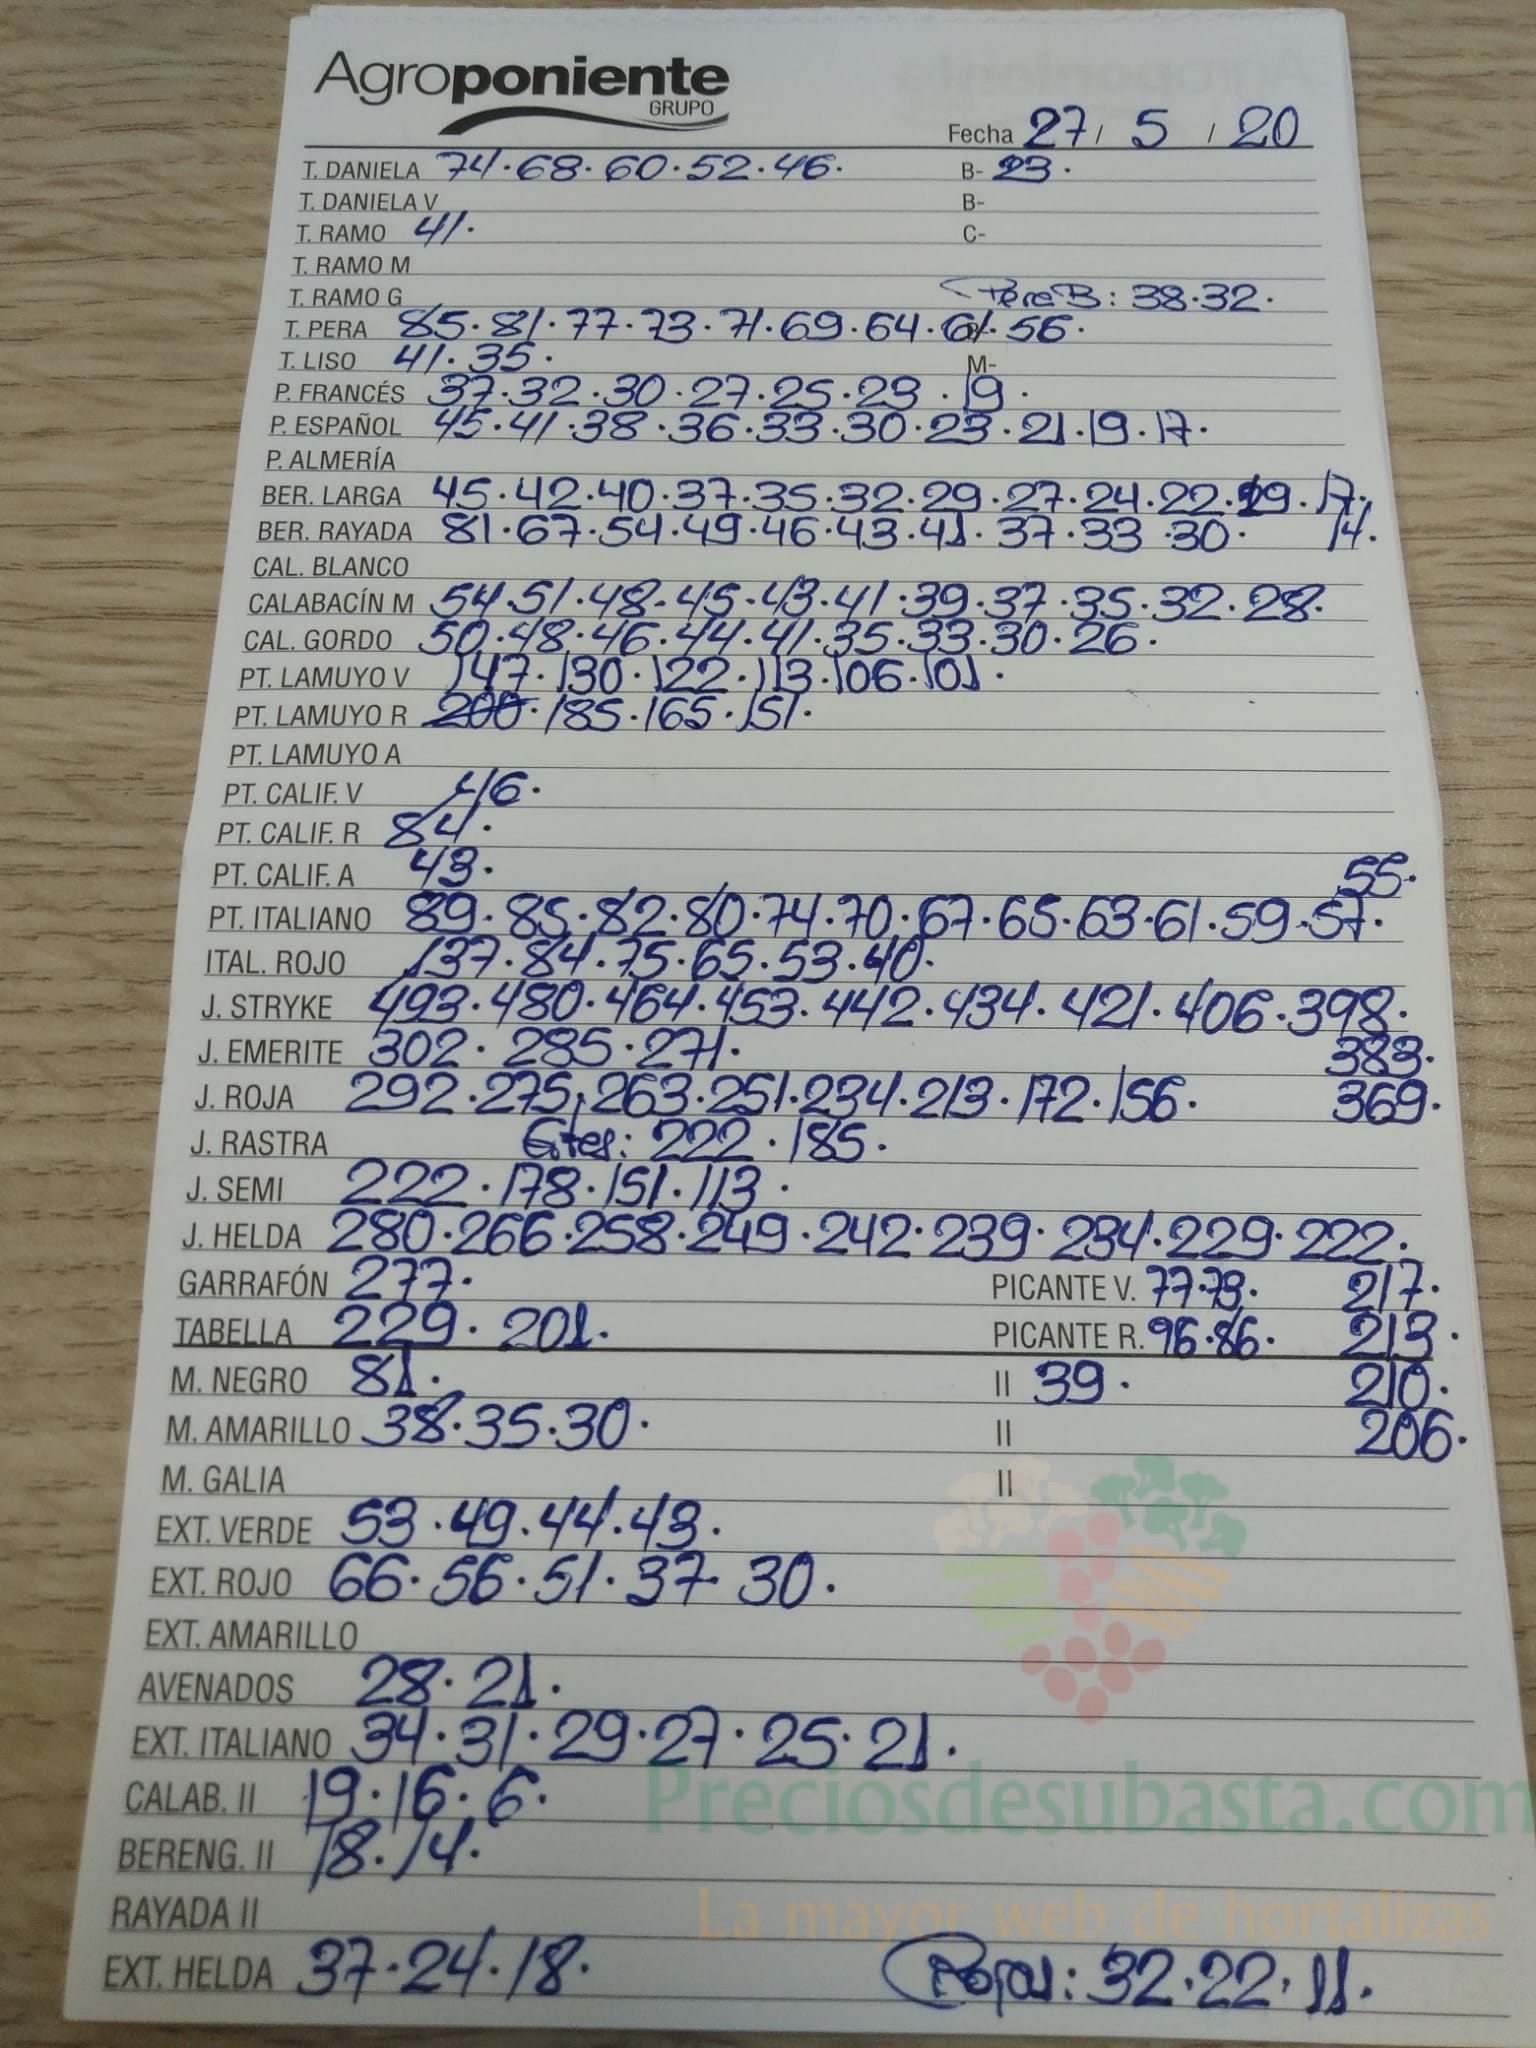 Agroponiente
GRUPO
Fecha 27 / 5 / 20
T. DANIELA 74·68·60·52·46· B- 23·
T. DANIELA V B-
T. RAMO 41· C-
T. RAMO M
T. RAMO G Pera B: 38·32·
T. PERA 85·81·77·73·71·69·64·61·56·
T. LISO 41·35· M-
P. FRANCÉS 37·32·30·27·25·23·19·
P. ESPAÑOL 45·41·38·36·33·30·23·21·19·17·
P. ALMERÍA
BER. LARGA 45·42·40·37·35·32·29·27·24·22·19·17·
BER. RAYADA 81·67·54·49·46·43·41·37·33·30· 14·
CAL. BLANCO
CALABACÍN M 54·51·48·45·43·41·39·37·35·32·28·
CAL. GORDO 50·48·46·44·41·35·33·30·26·
PT. LAMUYO V 147·130·122·113·106·101·
PT. LAMUYO R 200·185·165·151·
PT. LAMUYO A
PT. CALIF. V 46·
PT. CALIF. R 84·
PT. CALIF. A 43· 55·
PT. ITALIANO 89·85·82·80·74·70·67·65·63·61·59·57·
ITAL. ROJO 137·84·75·65·53·40·
J. STRYKE 493·480·464·453·442·434·421·406·398·
J. EMERITE 302·285·271· 383·
J. ROJA 292·275·263·251·234·213·172·156· 369·
J. RASTRA 222·185·
J. SEMI 222·178·151·113·
J. HELDA 280·266·258·249·242·239·234·229·222·
GARRAFÓN 277· PICANTE V. 77·73· 217·
TABELLA 229·201· PICANTE R. 96·86· 213·
M. NEGRO 81· II 39· 210·
M. AMARILLO 38·35·30· II 206·
M. GALIA II
EXT. VERDE 53·49·44·43·
EXT. ROJO 66·56·51·37·30·
EXT. AMARILLO
AVENADOS 28·21·
EXT. ITALIANO 34·31·29·27·25·21·
CALAB. II 19·16·6·
Preciosdesubasta.com
BERENG. II 18·14·
RAYADA II
La mayor web de hortalizas
EXT. HELDA 37·24·18· Rojos: 32·22·11·